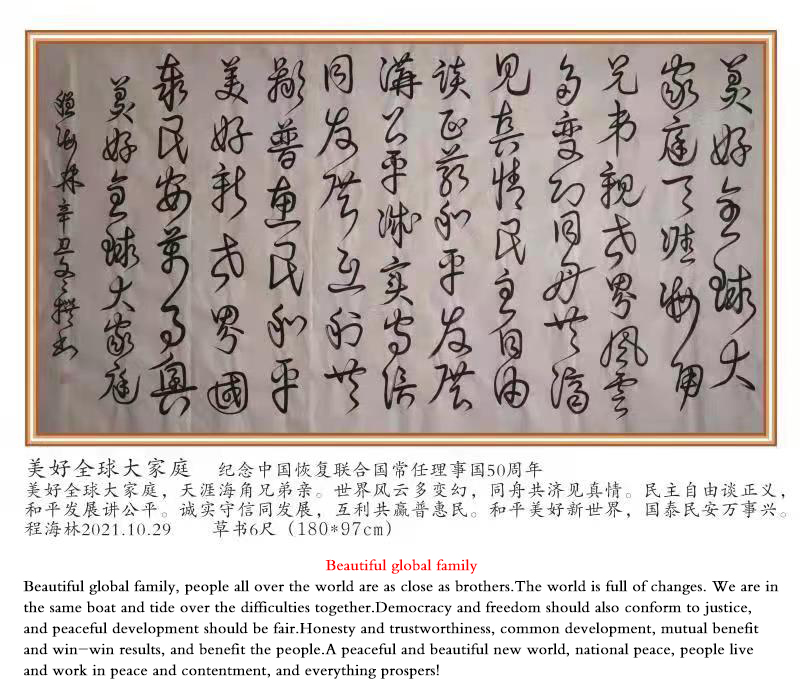 美好全球大
家庭天涯海角
兄弟親世界風雲
多變幻同舟共濟
見真情民主自由
談正義和平發展
講公平誠實守信
同發展互利共
贏普惠民和平
美好新世界國
泰民安萬事興
美好全球大家庭
程海林辛丑撰书
美好全球大家庭 纪念中国恢复联合国常任理事国50周年
美好全球大家庭，天涯海角兄弟亲。世界风云多变幻，同舟共济见真情。民主自由谈正义，
和平发展讲公平。诚实守信同发展，互利共赢普惠民。和平美好新世界，国泰民安万事兴。
程海林2021.10.29 草书6尺（180*97cm）
Beautiful global family
Beautiful global family, people all over the world are as close as brothers.The world is full of changes. We are in
the same boat and tide over the difficulties together.Democracy and freedom should also conform to justice,
and peaceful development should be fair.Honesty and trustworthiness, common development, mutual benefit
and win-win results, and benefit the people.A peaceful and beautiful new world, national peace, people live
and work in peace and contentment, and everything prospers!